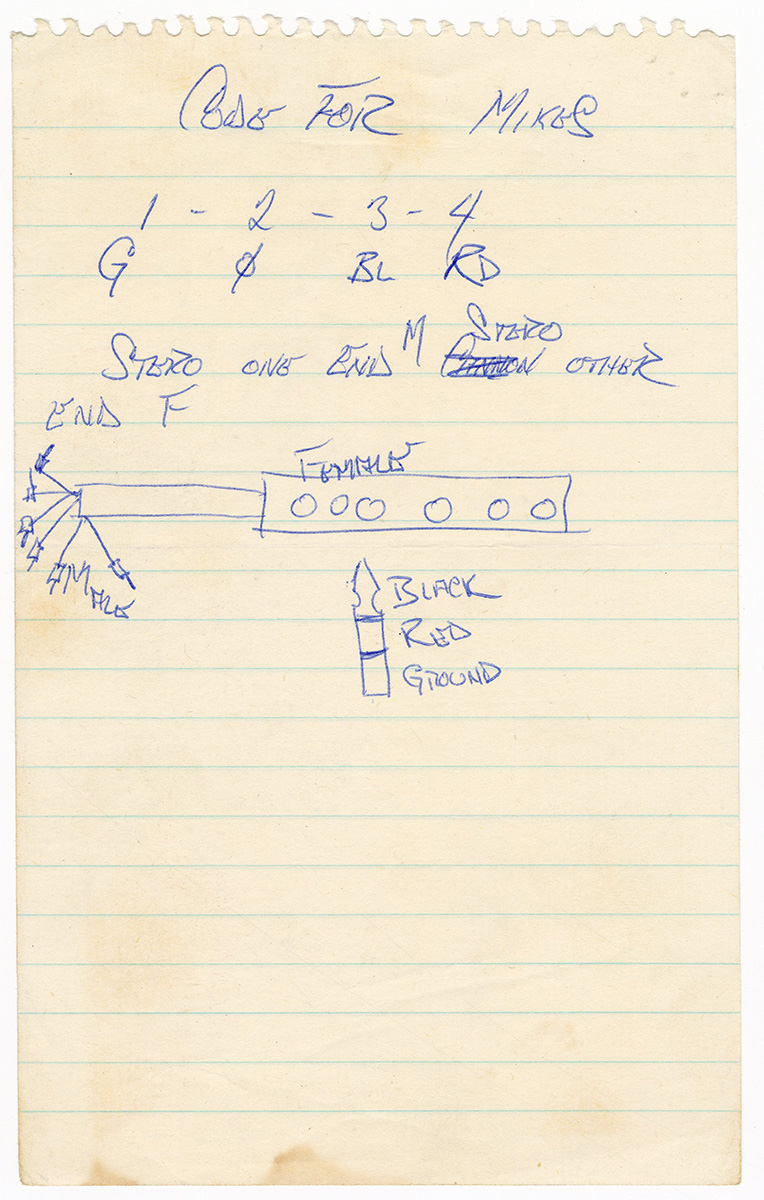 CODE FOR MIKES
1 - 2 - 3 - 4
G Ø BL RD
STERO ONE END M STERO OTHER
END F
FEMALE
MALE
BLACK
RED
GROUND